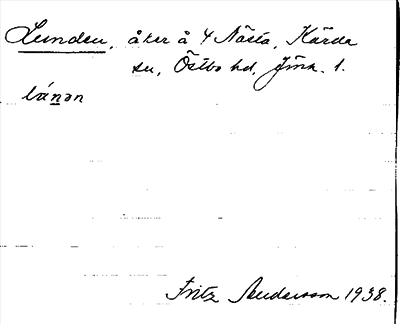 Lunden, åker å 4 Nästa, Kärda
sn, Östbo hd, Jönk. l.
lúnən
Fritz Andersson 1938.